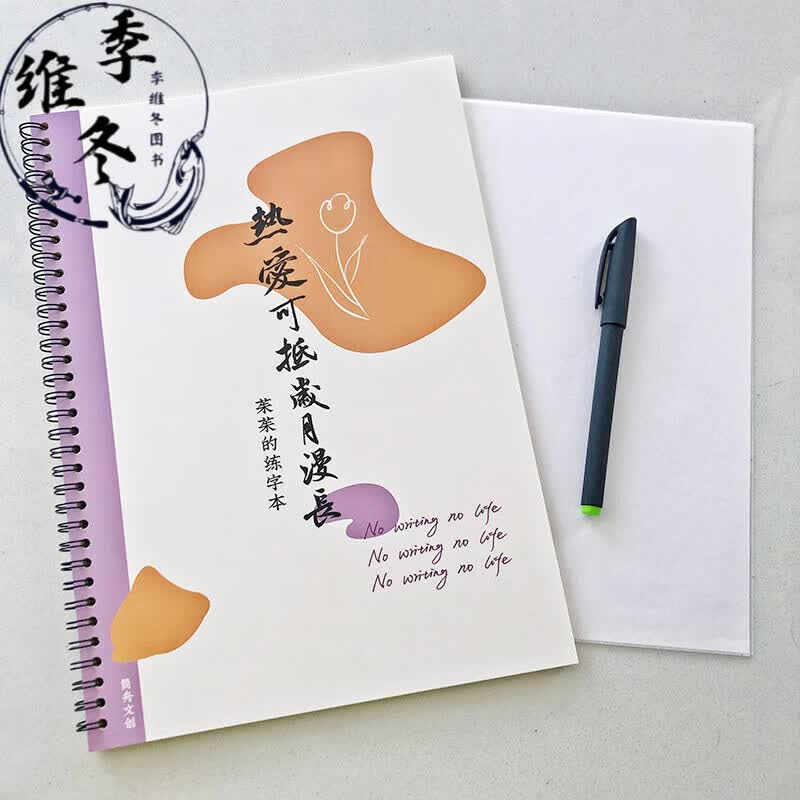 季维冬
李维冬图书
热愛可抵歲月漫長
茱茱的练字本
No writing no life
No writing no life
No writing no life
简舟文创